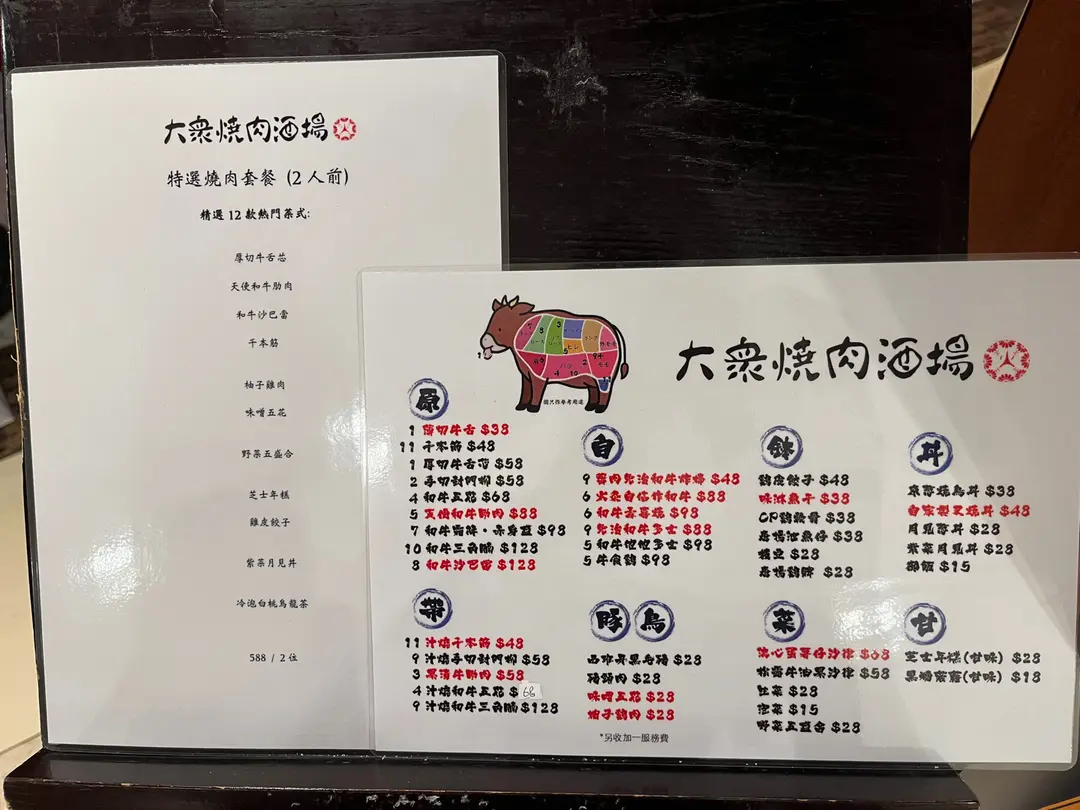 大衆燒肉酒場
特選燒肉套餐 (2 人前)
精選 12 款熱門菜式:
厚切牛舌芯
天使和牛肋肉
和牛沙巴雷
千本筋
柚子雞肉
味噌五花
野菜五盛合
芝士年糕
雞皮餃子
紫菜月見丼
冷泡白桃烏龍茶
588 / 2 位
大衆燒肉酒場
圖只作參考用途
原
1 薄切牛舌 $38
11 千本筋 $48
1 厚切牛舌芯 $58
2 手切封門柳 $58
4 和牛五花 $68
5 天使和牛肋肉 $88
7 和牛霜降・赤身盛 $98
10 和牛三角腩 $128
8 和牛沙巴雷 $128
白
9 和牛炸 $48
6 火炙自家炸和牛 $88
6 和牛壽喜燒 $98
9 和牛多士 $88
5 和牛多士 $98
5 牛 $98
鉢
鷄皮餃子 $48
味淋魚干 $38
CP鷄軟骨 $38
池魚仔 $38
枝豆 $28
鷄髀 $28
丼
京葱燒鳥丼 $38
自家製叉燒丼 $48
月見葱丼 $28
紫菜月見丼 $28
御飯 $15
帶
11 汁燒千本筋 $48
9 汁燒手切封門柳 $58
3 黑漬牛肋肉 $58
4 汁燒和牛五花 $68
9 汁燒和牛三角腩 $128
豚 鳥
西班牙黑毛豬 $28
豬頸肉 $28
味噌五花 $28
柚子鷄肉 $28
菜
流心蛋薯仔沙律 $68
牛油果沙律 $58
肚菜 $28
泡菜 $15
野菜五盛合 $28
甘
芝士年糕(甘味) $28
黑糖 (甘味) $18
*另收加一服務費